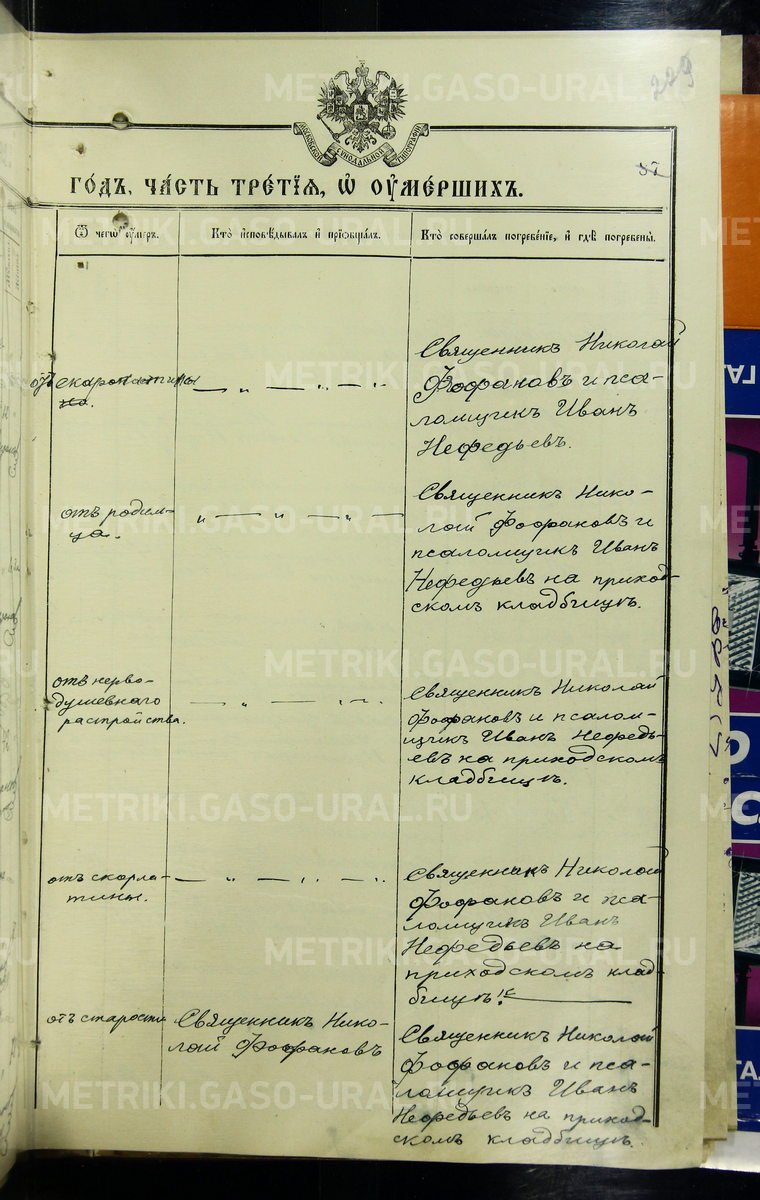 229
МОСКОВСКОЙ СѴНОДАЛЬНОЙ ТИПОГРАФІИ
87
ГО́ДЪ, ЧА́СТЬ ТРЕ́ТІѦ, Ѽ ОУ҆МЕ́РШИХЪ.
Ѿ чегѡ̀ оу҆́меръ.
Кто̀ и҆сповѣ́дывалъ и҆ прїѡбща́лъ.
Кто̀ соверша́лъ погребе́нїе, и҆ гдѣ̀ погребены̀.
отъ
Священникъ Николай
Фофановъ и пса-
ломщикъ Иванъ
Нефедьевъ.
отъ родим-
ца.
Священникъ Нико-
лай Фофановъ и
псаломщикъ Иванъ
Нефедьевъ на приход-
скомъ кладбищѣ.
отъ нерво-
душевнаго
растройства.
Священникъ Николай
Фофановъ и псалом-
щикъ Иванъ Нефедь-
евъ на приходскомъ
кладбищѣ.
отъ скарла-
тины.
Священникъ Николай
Фофановъ и пса-
ломщикъ Иванъ
Нефедьевъ на
приходскомъ клад-
бищѣ.
отъ старости
Священникъ Нико-
лай Фофановъ
Священникъ Николай
Фофановъ и пса-
ломщикъ Иванъ
Нефедьевъ на приход-
скомъ кладбищѣ.
METRIKI.GASO-URAL.RU